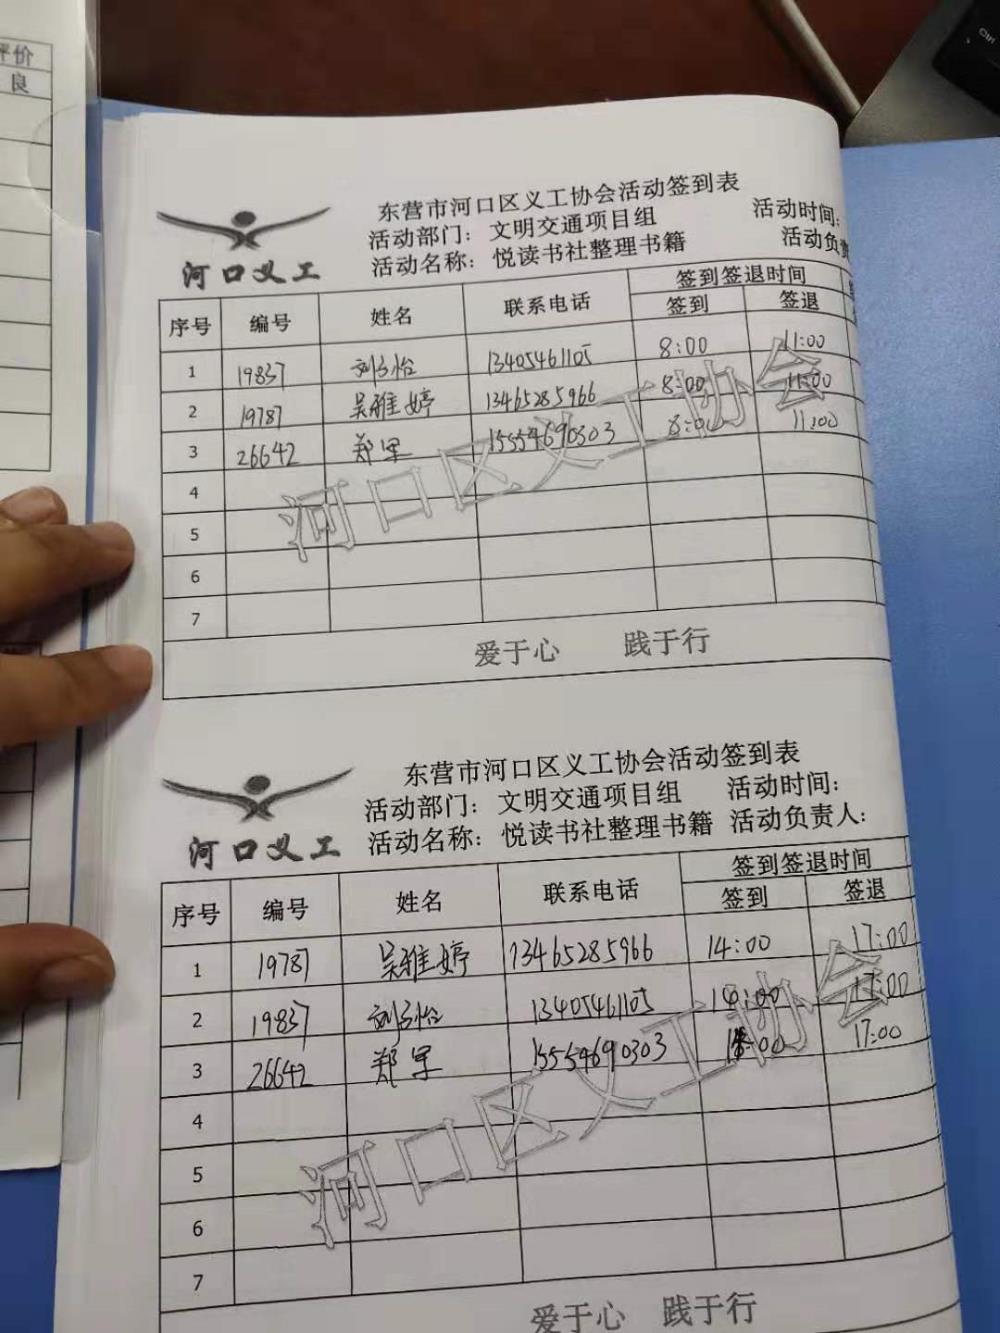 评价
良
Ctrl
东营市河口区义工协会活动签到表
活动部门：文明交通项目组 活动时间：
活动名称：悦读书社整理书籍 活动负责
河口义工
序号 编号 姓名 联系电话 签到签退时间
签到 签退
1 19837 13405461105 8:00 11:00
2 19787 吴雅婷 13465285966 8:00 11:00
3 26642 郑军 15554690303 8:00 11:00
4
5
6
7
河口区义工协会
爱于心 践于行
东营市河口区义工协会活动签到表
活动部门：文明交通项目组 活动时间：
活动名称：悦读书社整理书籍 活动负责人：
河口义工
序号 编号 姓名 联系电话 签到签退时间
签到 签退
1 19787 吴雅婷 13465285966 14:00 17:00
2 19837 13405461105 14:00 17:00
3 26642 郑军 15554690303 14:00 17:00
4
5
6
7
河口区义工协会
爱于心 践于行